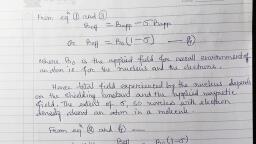 From eqn (1) and (3)
Beff = Bapp - σ Bapp
or Beff = B0 (1-σ) — (4)
where B0 is the applied field for overall environment of
an atom i.e. for the nucleus and the electrons.
Hence total field experienced by the nucleus depends
on the shielding constant and the applied magnetic
field. The extent of σ, so varies with electron
density around an atom in a molecule.
From eqn (2) and (4)
Beff = B0 (1-σ)